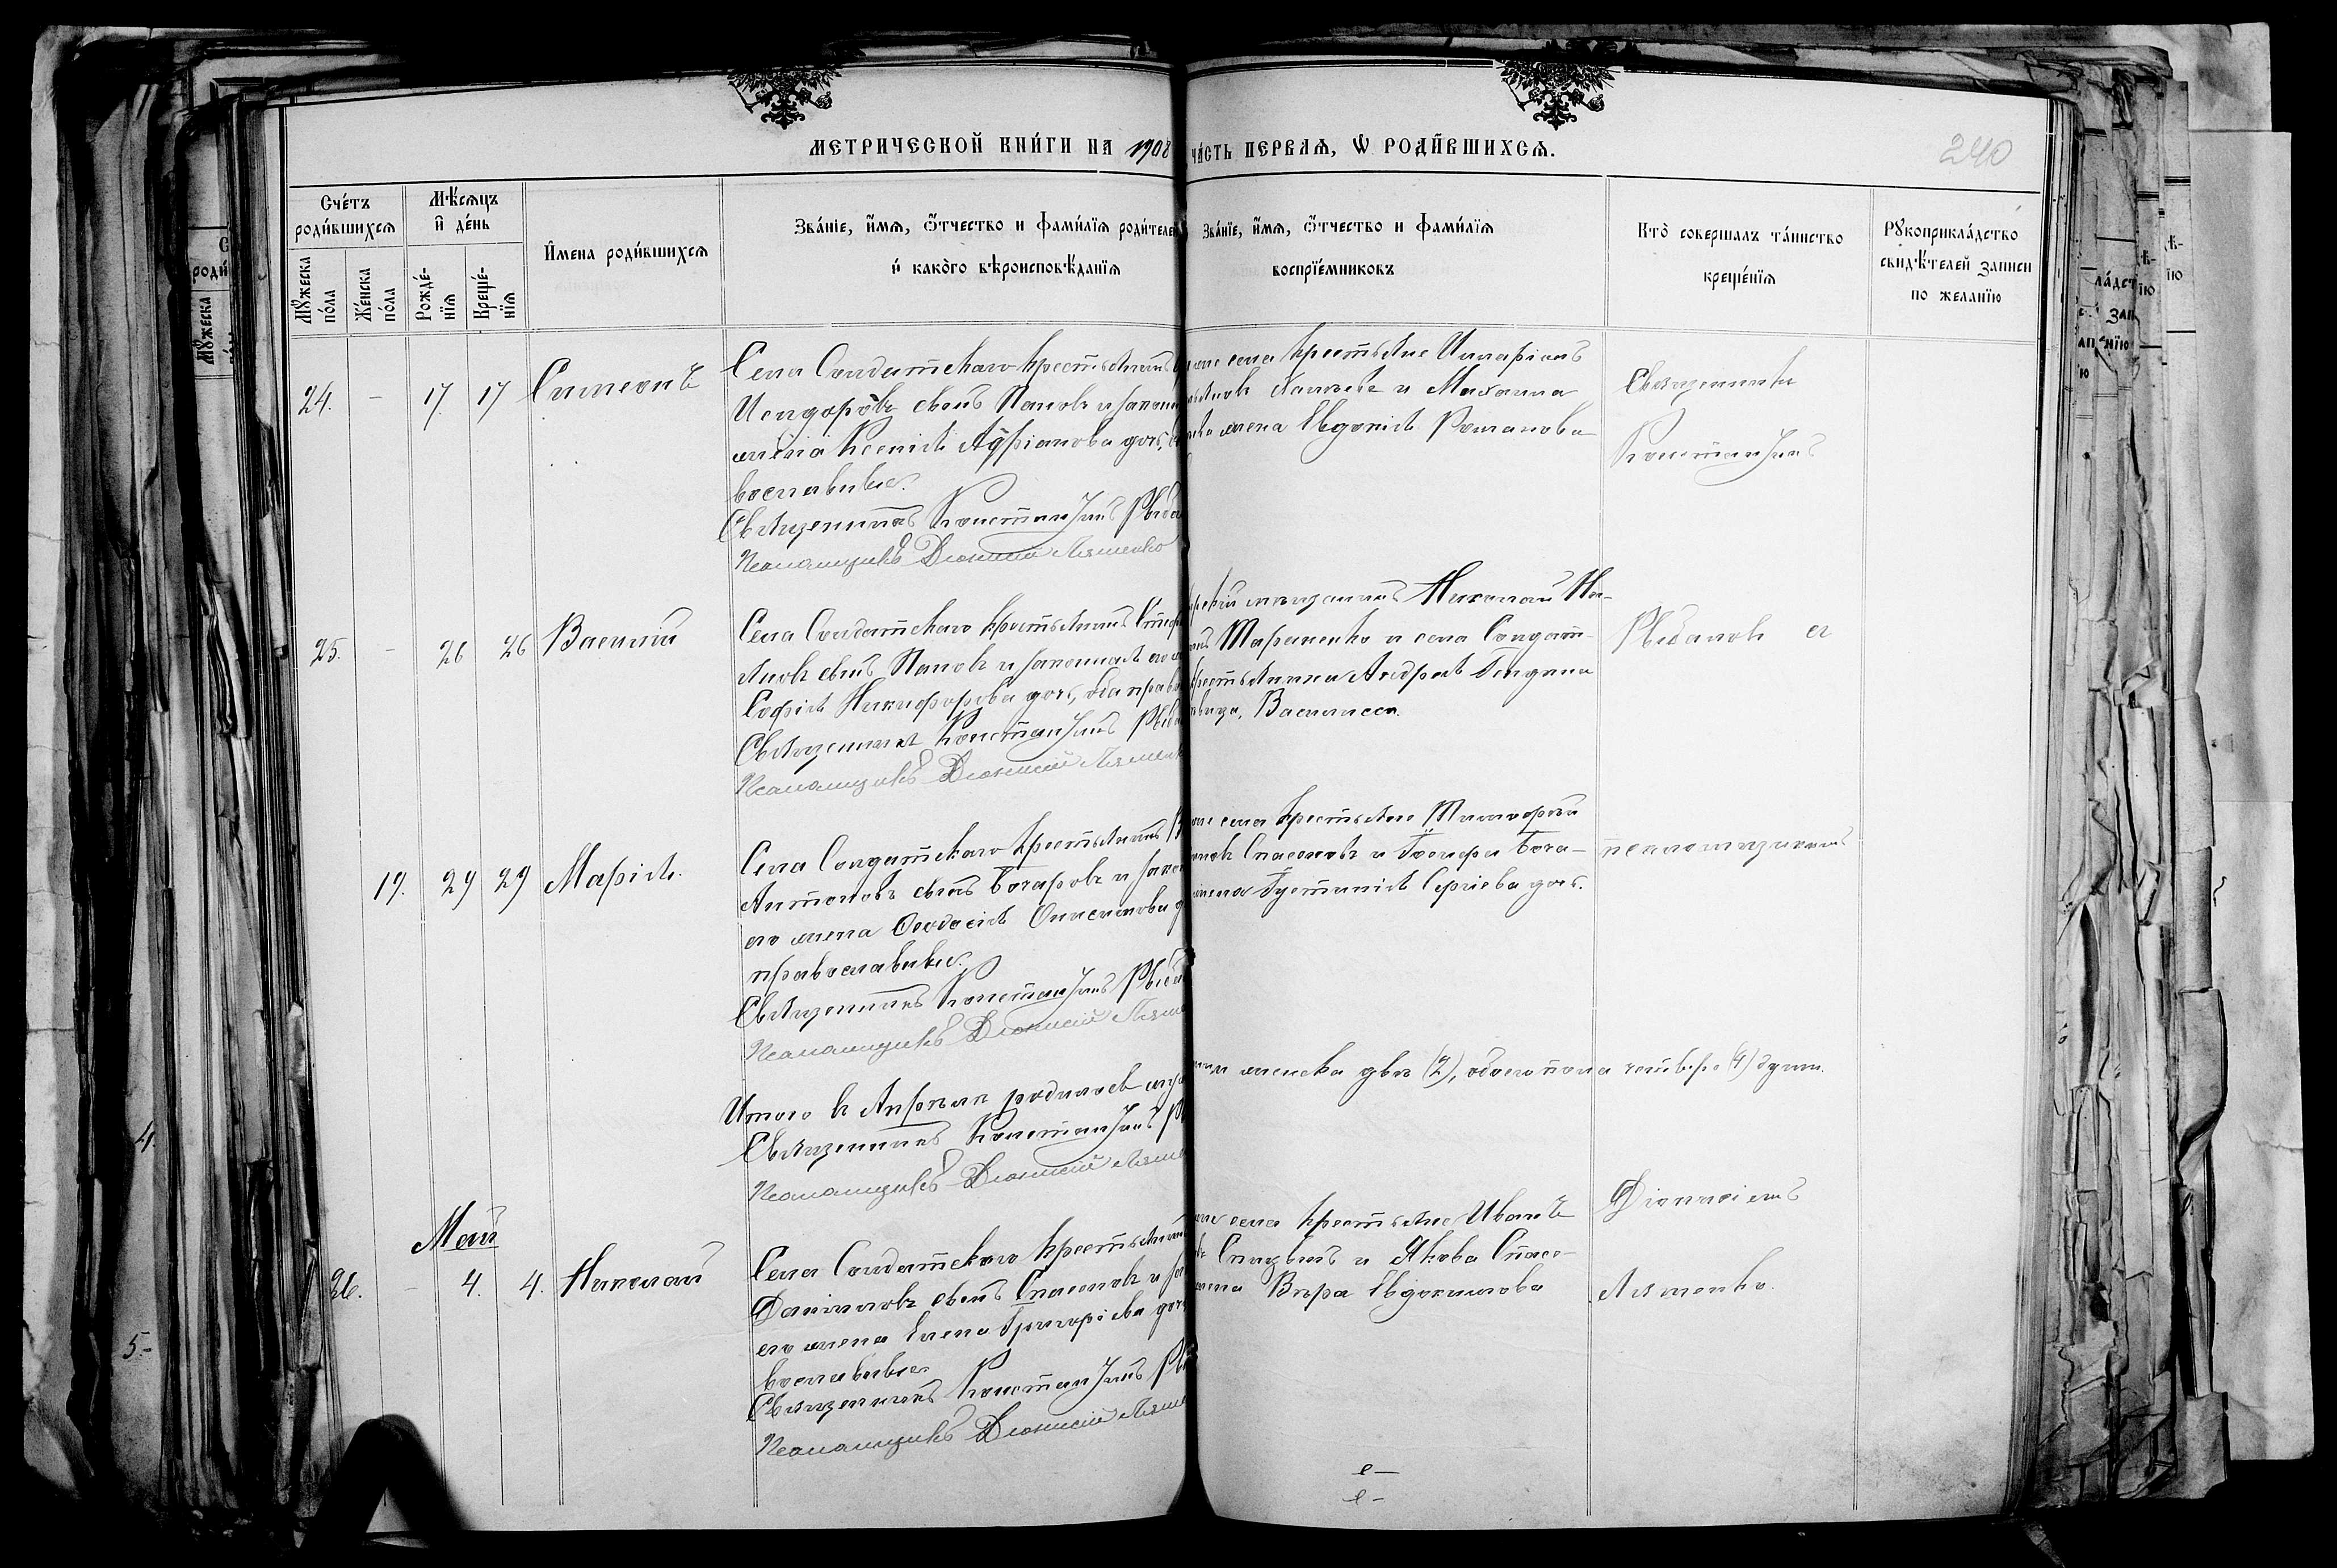 МЕТРИЧЕСКОЙ КНИ́ГИ НА 1908
ЧА́СТЬ ПЕРВАѦ, Ѡ РОДИ́ВШИХСѦ.
240
Сче́тъ роди́вшихсѧ
Мꙋ́жеска по́ла
Же́нска по́ла
Мѣ́сѧцъ и҆ де́нь
Рожде́-нїѧ
Креще́-нїѧ
И҆мена роди́вшихсѧ
Зва́нїе, и҆́мѧ, ѻ҆́тчество и фами́лїѧ роди́теле
и҆ како́го вѣроисповѣ́данїѧ
Зва́нїе, и҆́мѧ, ѻ҆́тчество и фами́лїѧ
воспрїе́мниковъ
Кто̀ совершалъ та́инство
креще́нїѧ
Рꙋкоприкла́дство
свидѣ́телей записи
по желанїю
24. - 17. 17 Симеонъ
Села Солдатскаго крестьянинъ
Исидоровъ сынъ Пановъ и закон
жена Ксенія Адріанова дочь,
вославные.
Священникъ Константинъ Рыба
Псаломщикъ Діонисій Ляшенко
села крестьяне Иларіонъ
Пановъ и Михаила
жена Евдокія Романова
Священникъ
Константинъ
25. - 26 26 Василій
Села Солдатскаго крестьянинъ Стеф
сынъ Пановъ и законная его
Софія Никифорова дочь, оба право
Священникъ Константинъ Рыба
Псаломщикъ Діонисій Ляшенк
мѣщанинъ Николай
Тараненко и села Солдат-
крестьянина Андрея
вица, Василисса.
Рыбаловъ съ
19. 29 29 Марія.
Села Солдатскаго крестьянинъ
Антоновъ сынъ Бочаровъ и закон
его жена Ѳеодосія Онисимова
православные.
Священникъ Константинъ Рыба
Псаломщикъ Діонисій Ляше
села крестьяне Тимофей
Спасеновъ и Іосифа Боча-
жена Іустинія Сергіева дочь.
псаломщикомъ
Итого въ Апрѣлѣ родилось муж
женска два (2), обоего пола четверо (4) душъ.
Священникъ Константинъ Р
Псаломщикъ Діонисій Ляше
Май
26. - 4. 4. Николай
Села Солдатскаго крестьянин
Даніиловъ сынъ Спасеновъ и за
его жена Елена Григоріева дочь
вославные
Священникъ Константинъ Ры
Псаломщикъ Діонисій Ляше
села крестьяне Иванъ
и Якова Спасе-
жена Вѣра Евдокимова
Діонисіемъ
Ляшенко.